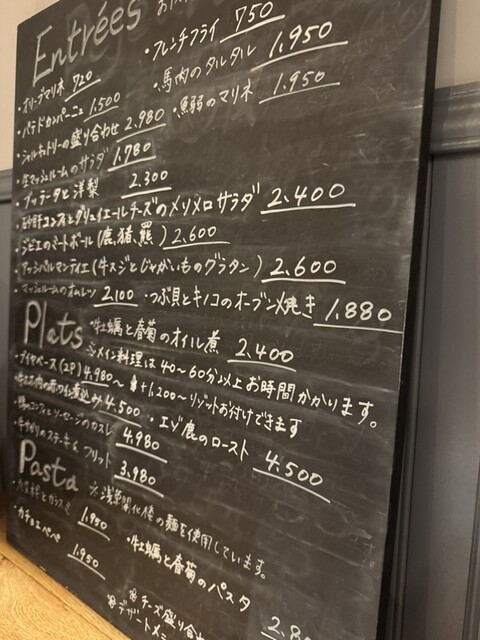 Entrées
・フレンチフライ 750
・オリーブマリネ 720
・馬肉のタルタル 1.950
・パテドカンパーニュ 1.500
・魚弱のマリネ 1.950
・シャルキュトリーの盛り合わせ 2.980
・生マッシュルームのサラダ 1.780
・ブッラータと洋梨 2.300
コンフィとグリュイエールチーズのメリメロサラダ 2.400
・ジビエのミートボール(鹿、猪、羆) 2.600
・アッシパルマンティエ(牛スジとじゃがいものグラタン) 2.600
・マッシュルームのオムレツ 2.100 ・つぶ貝とキノコのオーブン焼き 1.880
・牡蠣と春菊のオイル煮 2.400
Plats ※メイン料理は40〜60分以上お時間かかります。
・ブイヤベース(2P) 4.980〜 +1,200〜リゾットお付けできます
煮込み 4.500 ・エゾ鹿のロースト 4.500
のコンフィとソーセージのカスレ 4.980
のステーキ フリット 3.980
Pasta ※浅草開化楼の麺を使用しています。
1.950 ・牡蠣と春菊のパスタ
・カチョエペペ 1.950
※チーズ盛り合わ
※デザートメニ